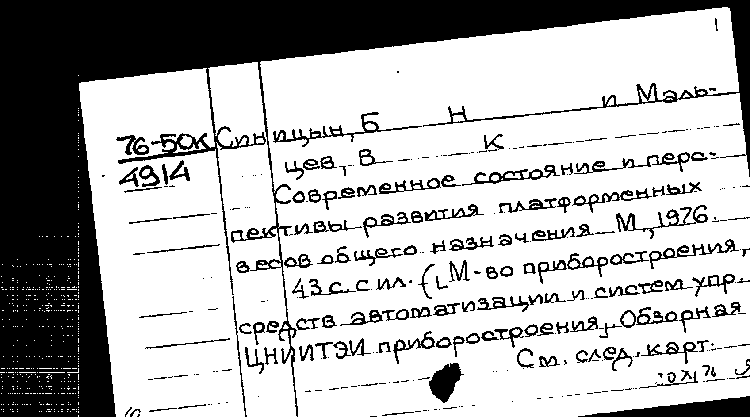 1
76-50К Синицын, Б Н и Маль-
4914 цев, В К
Современное состояние и перс-
пективы развития платформенных
весов общего назначения. М., 1976.
43 с. с ил. (М-во приборостроения,
средств автоматизации и систем упр.
ЦНИИТЭИ приборостроения, Обзорная
См. след. карт.